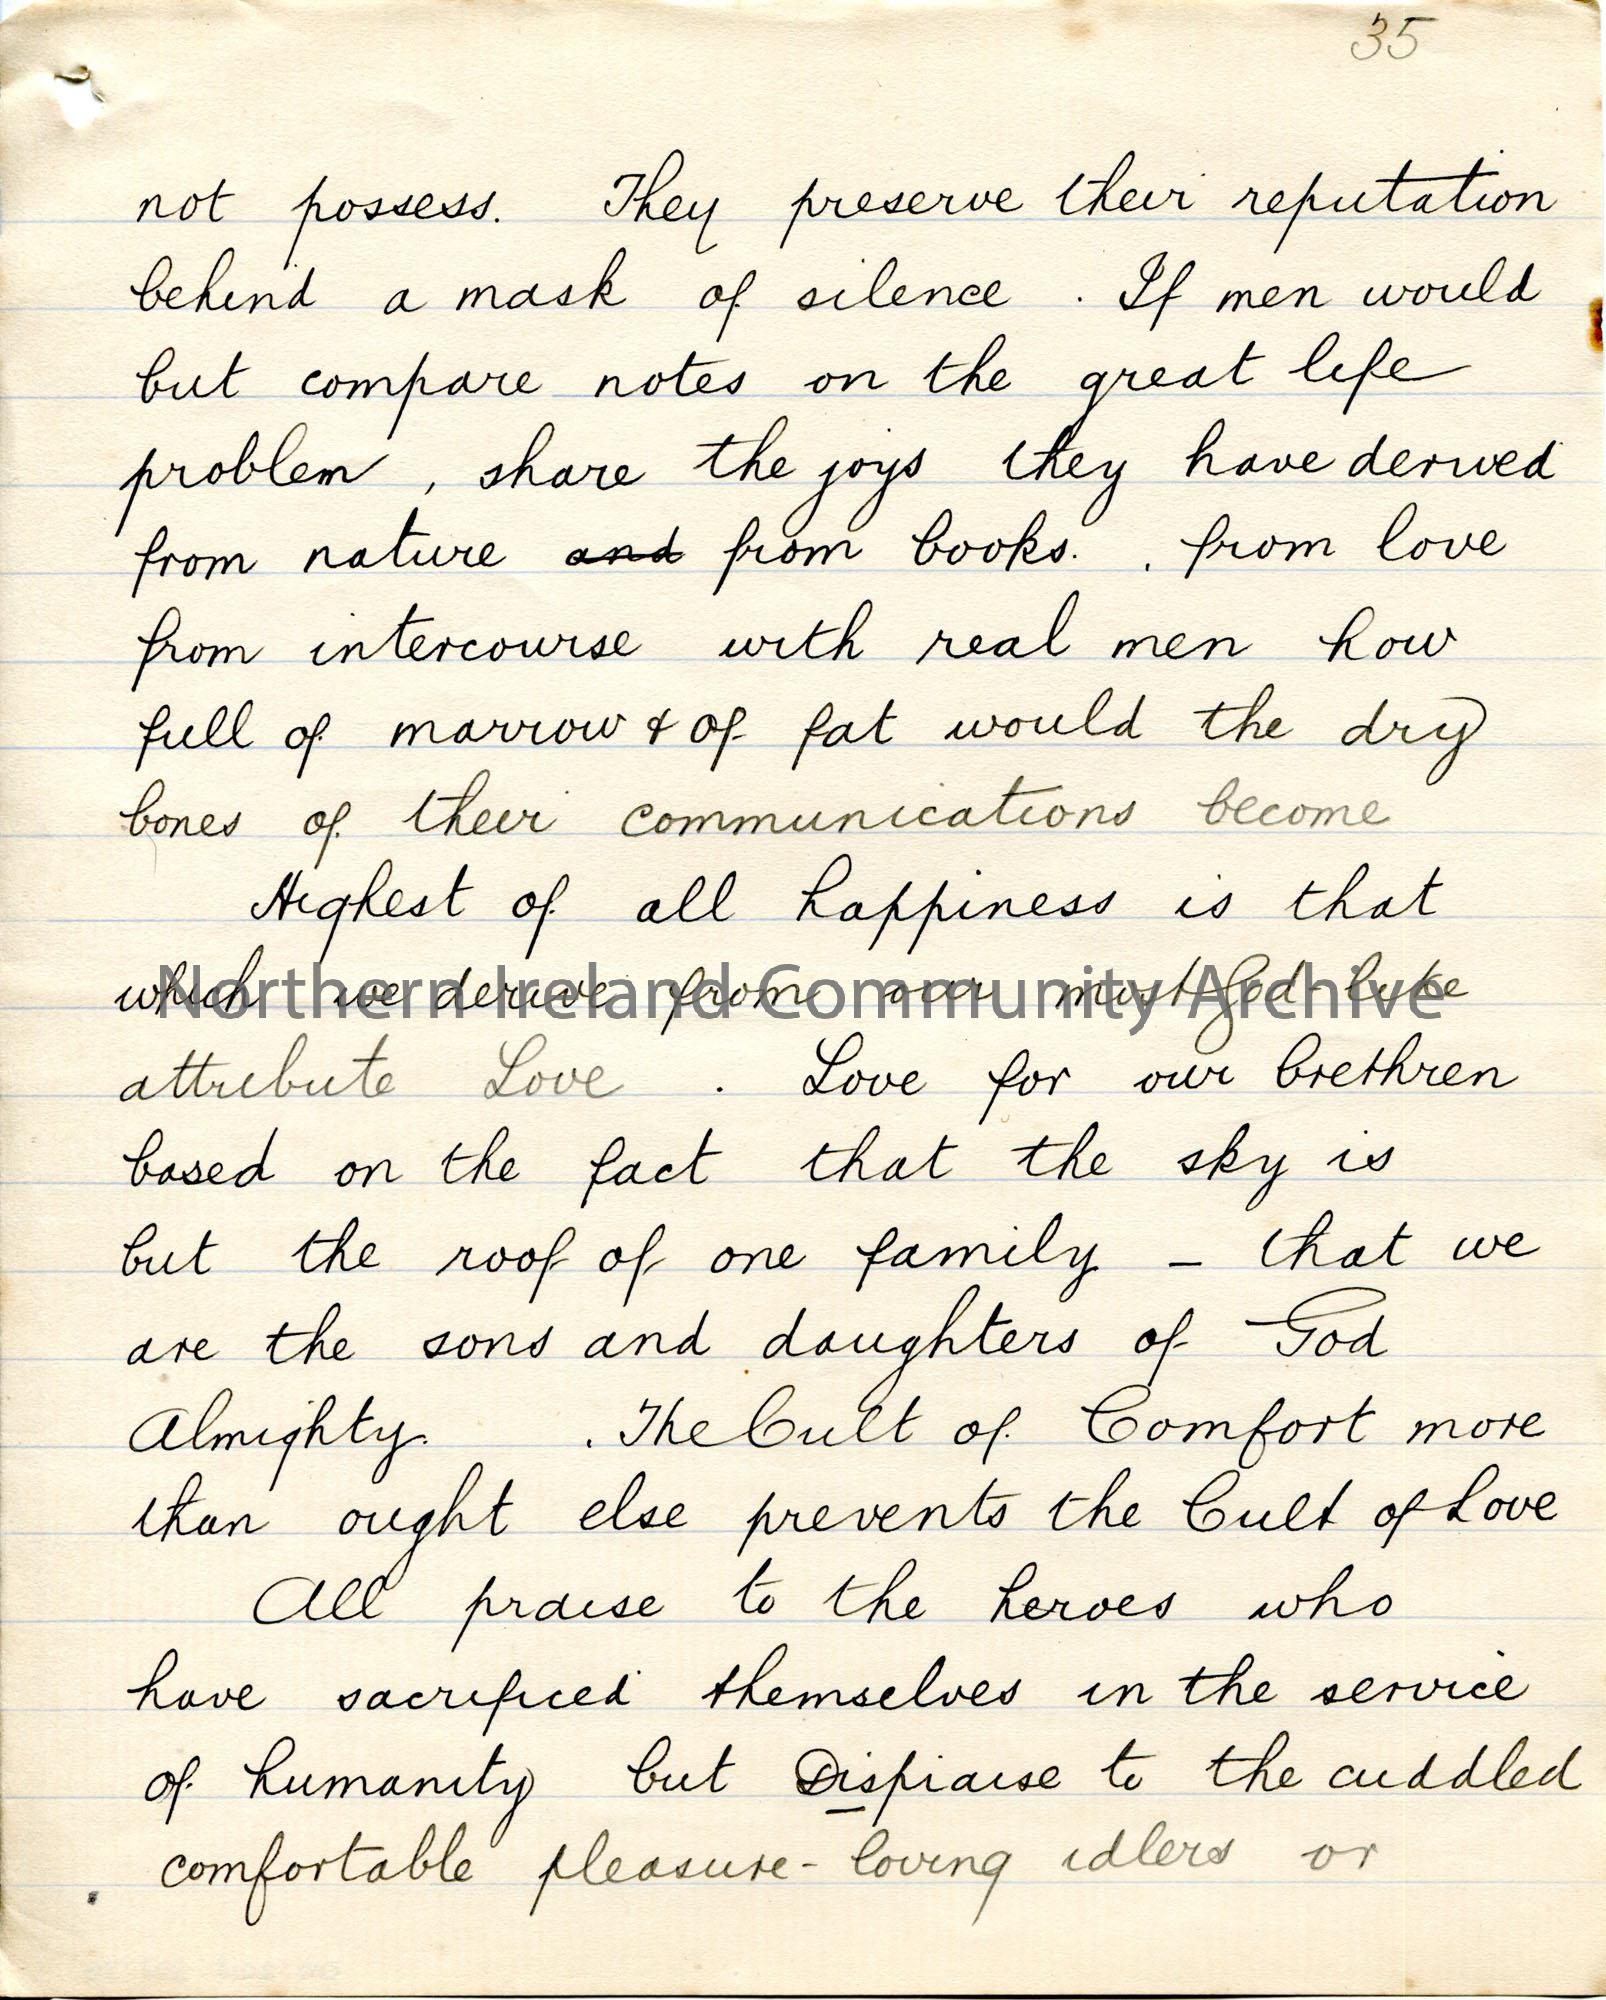 35
not possess. They preserve their reputation
behind a mask of silence . If men would
but compare notes on the great life
problem , share the joys they have derived
from nature and from books. . from love
from intercourse with real men how
full of marrow & of fat would the dry
bones of their communications become
Highest of all happiness is that
which we derive from our most God-like
Northern Ireland Community Archive
attribute Love . Love for our brethren
based on the fact that the sky is
but the roof of one family - that we
are the sons and daughters of God
Almighty. . The Cult of Comfort more
than ought else prevents the Cult of Love
All praise to the heroes who
have sacrificed themselves in the service
of humanity but Dispraise to the cuddled
comfortable pleasure-loving idlers or